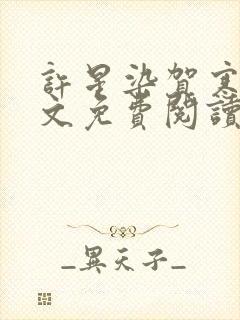 許星染賀寒
文免費閱讀
_異天子_